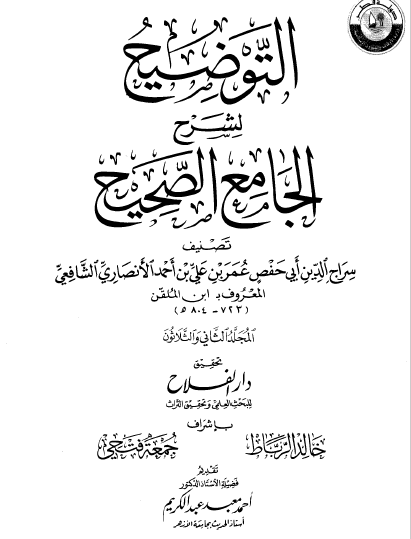 التَّوضِيح
لِشَرْح
الجَامِع الصَّحِيح
تَصْنِيف
سِرَاجِ الدِّينِ أَبِي حَفْصٍ عُمَرَ بْنِ عَلِيِّ بْنِ أَحْمَد الأَنْصَارِيِّ الشَّافِعِيِّ
المَعْرُوف بـ ابن المُلَقِّن
(٧٢٣ - ٨٠٤ هـ)
المُجَلَّد الثَّانِي وَالثَّلَاثُونَ
تحقيق
دار الفلاح
للبحث العلمي وتحقيق التراث
بإشراف
خالد الرباط جمعة فتحي
تقديم
فضيلة الأستاذ الدكتور
أحمد معبد عبد الكريم
أستاذ الحديث بجامعة الأزهر